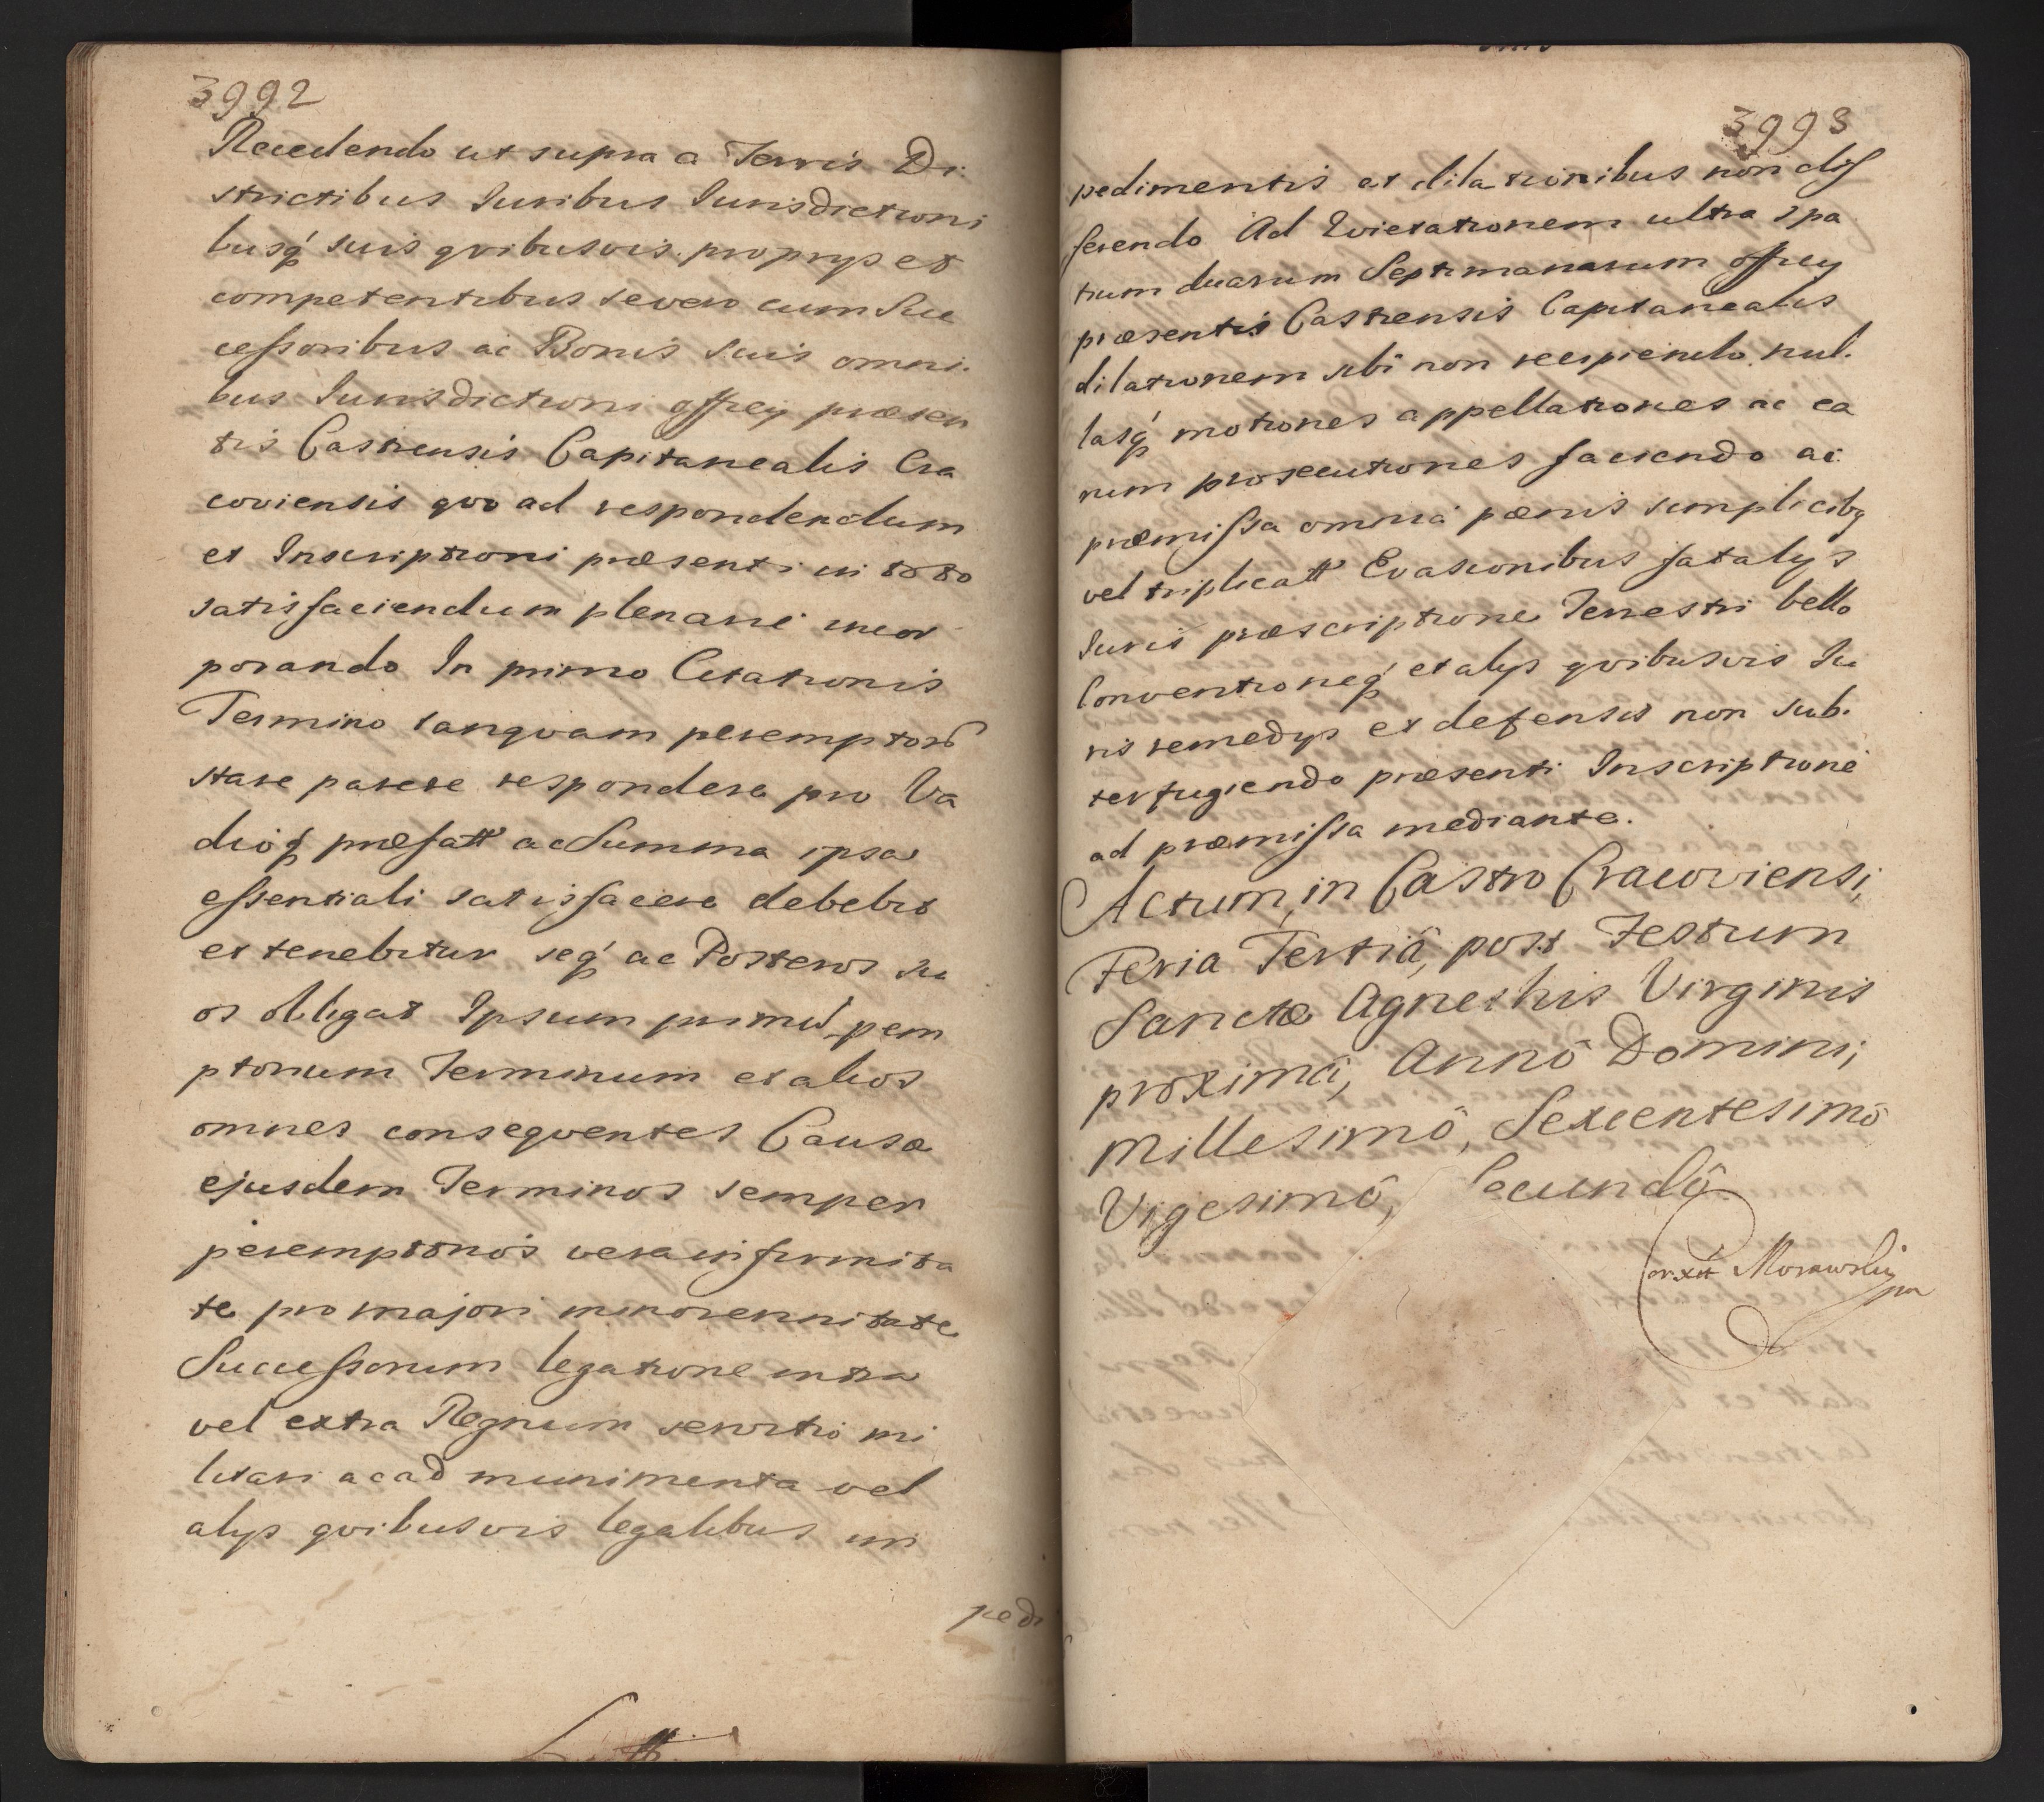 3992
Recedendo ut supra a Terris Di:
strictibus Iuribus Iurisdictioni
busq́ suis qvibusvis propryis et
competentibus severo cum Suc
cessoribus ac Bonis suis omni.
bus Iurisdictioni officy præsen
tis Castrensis Capitanealis Cra
coviensis qvo ad respondendum
et Inscriptioni præsenti in toto
satisfaciendum plenarie incor
porando In primo Citationis
Termino tanqvam peremptorio
stare parere respondere pro Va
dioq́ præfatt ac Summa ipsa
essentiali satisfacere debebit
et tenebitur seq́ ac Posteros su
os obligat Ipsum primu pem
ptorium Terminum et alios
omnes conseqventes Causæ
ejusdem Terminos semper
peremptorios vera infirmita
te pro majori minorennitate
Successorum legatione intra
vel extra Regnum servitio mi
litari ac ad munimenta vel
alys qvibusvis legalibus im
pedi
3993
pedimentis et dilationibus non dif
ferendo Ad Evictationem ultra spa
tium duarum Septimanarum officy
præsentis Castrensis Capitanealis
dilationem sibi non recipiendo nul.
lasq́ motiones appellationes ac ea
rum prosecutiones faciendo ac
præmissa omnia pænis simplicibq
vel triplicatt Evasionibus fatalys
Iuris præscriptione Terrestri bello
Conventioneq́ et alys qvibusvis Iu
ris remedys et defensis non sub.
terfugiendo præsenti Inscriptione
ad præmissa mediante.
Actum, in Castro Cracoviensi,
Feria Tertiâ, post Festum
Sanctæ Agnethis Virginis
proximâ, Annô Domini,
Millesimô, Sexcentesimô
Vigesimô, Secundô
Corxtt Morawski
mp